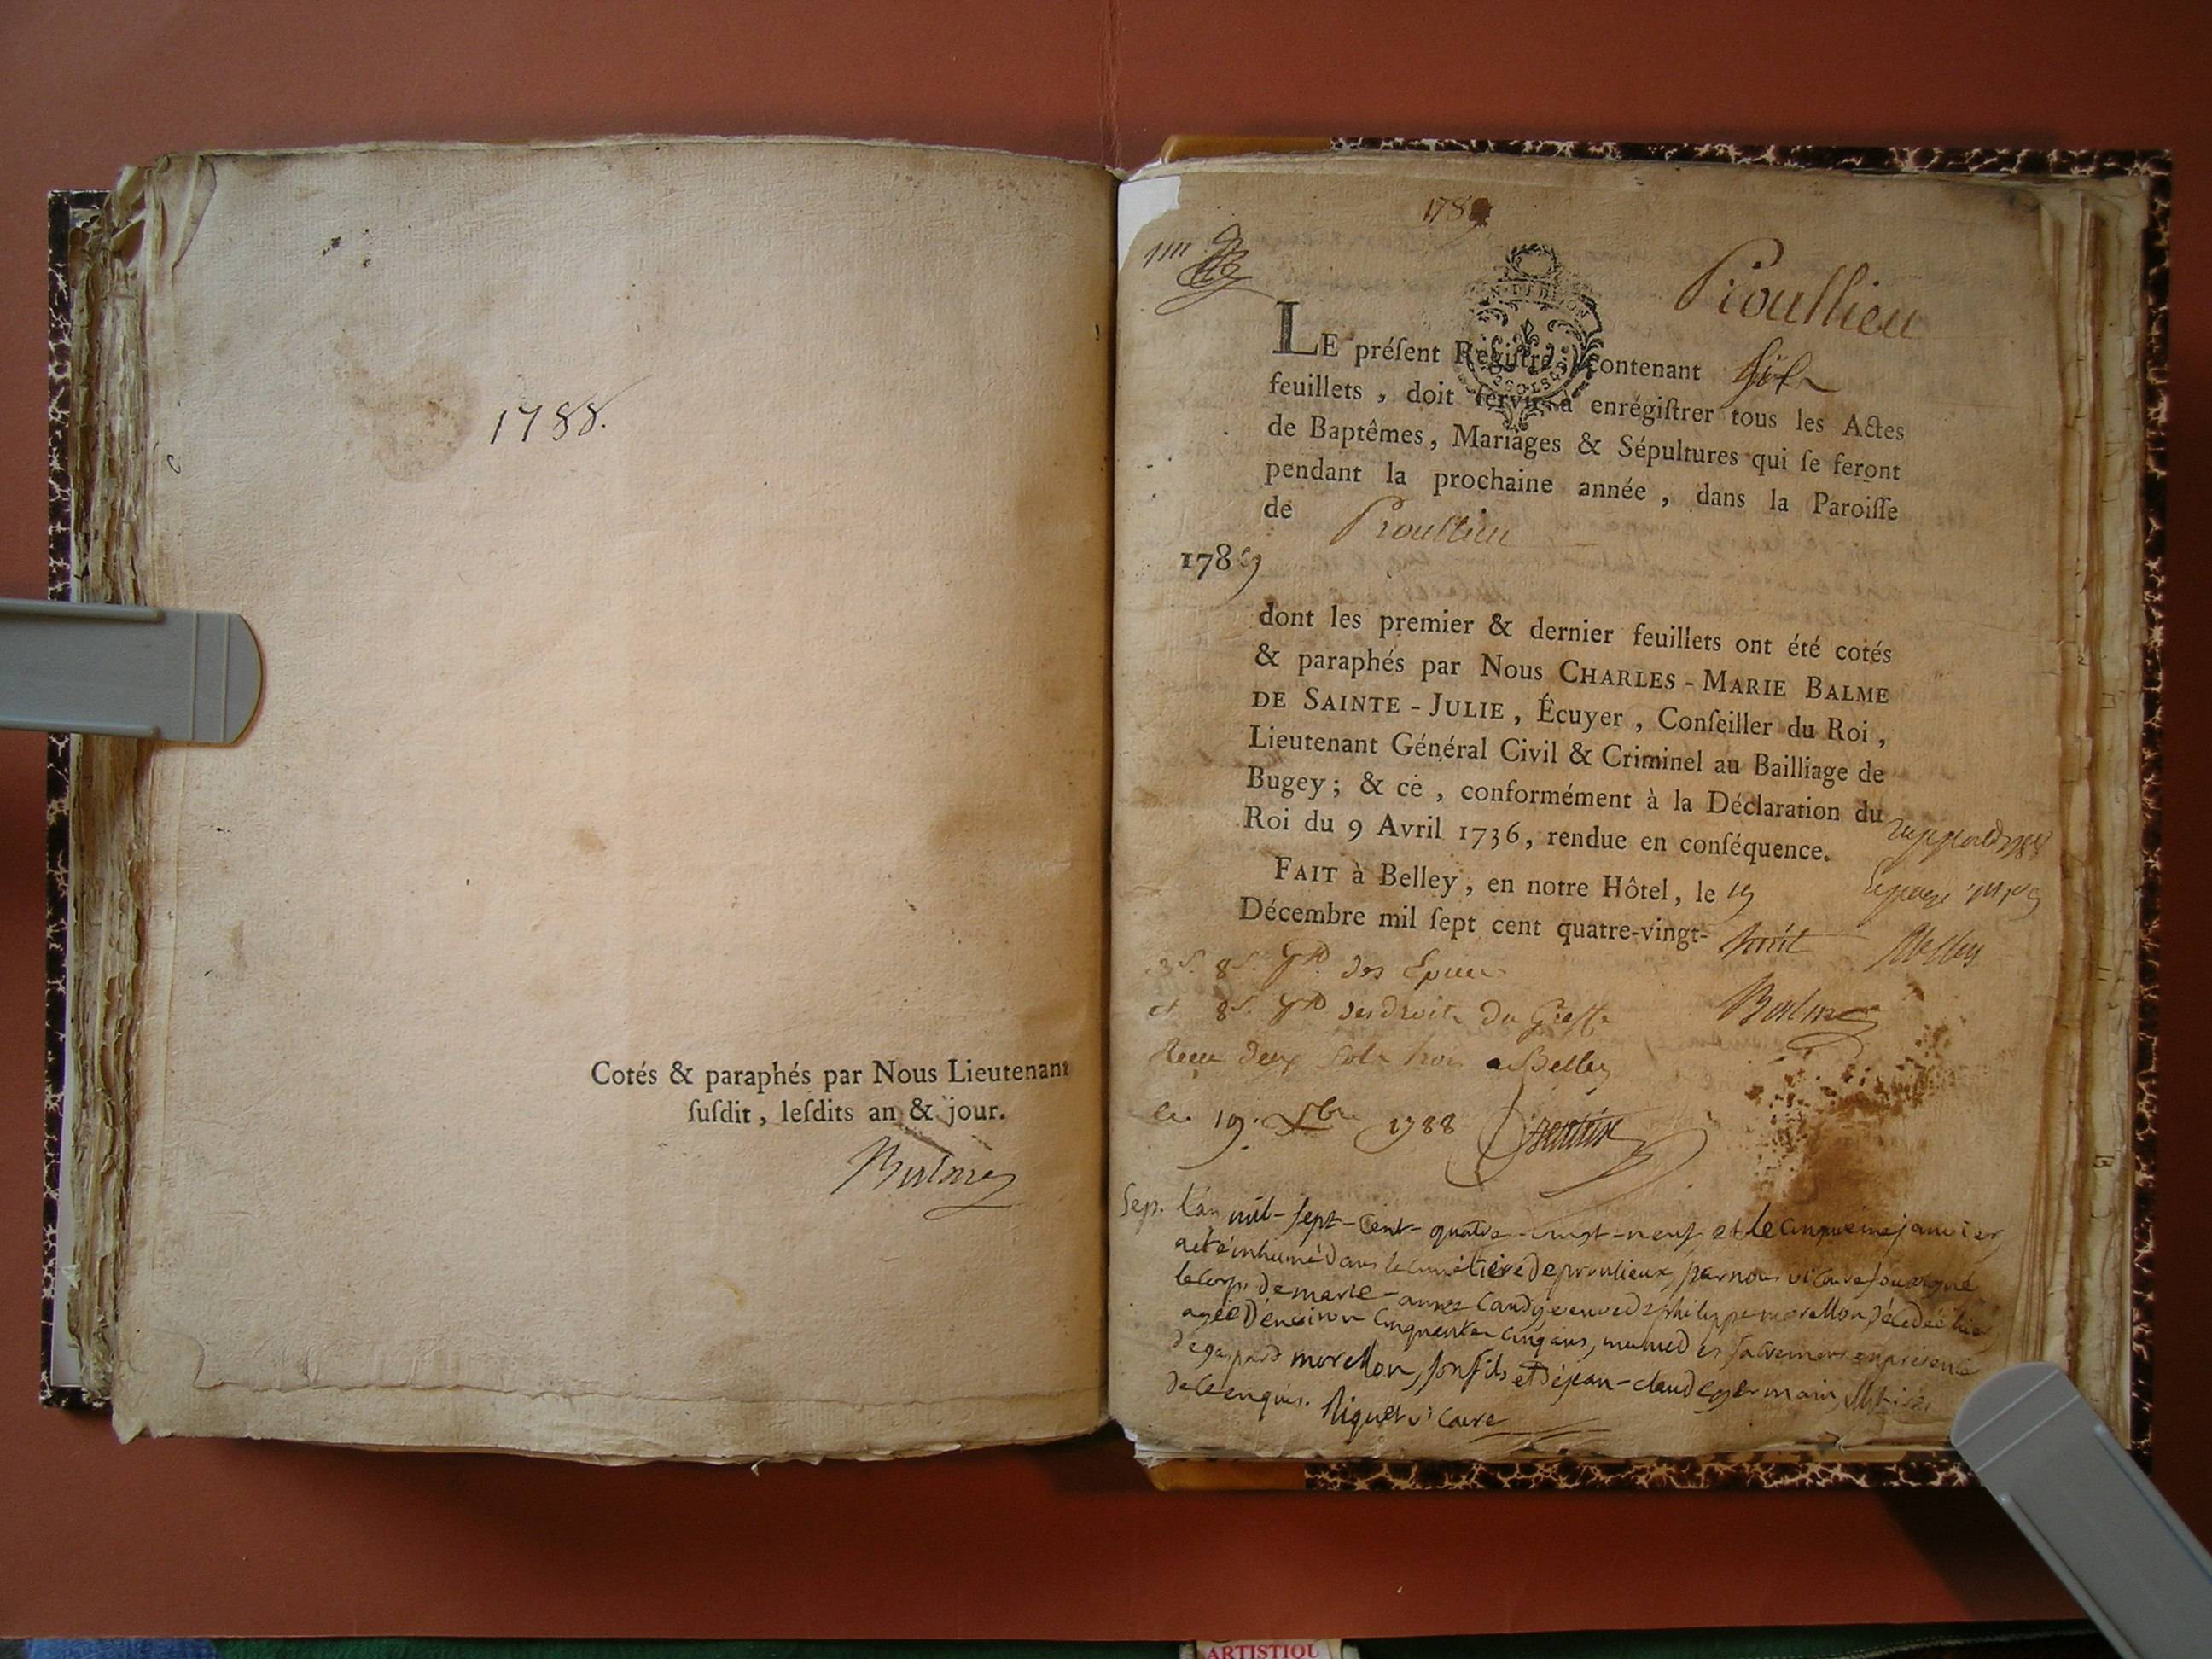 1788.
Cotés & paraphés par Nous Lieutenant
ſuſdit, leſdits an & jour.
Balme
1789
Proullieu
LE préſent Regiſtre, contenant ſix
feuillets, doit ſervir à enrégiſtrer tous les Actes
de Baptêmes, Mariages & Sépultures qui ſe feront
pendant la prochaine année, dans la Paroiſſe
de Proullieu
1789
dont les premier & dernier feuillets ont été cotés
& paraphés par Nous CHARLES-MARIE BALME
DE SAINTE-JULIE, Écuyer, Conſeiller du Roi,
Lieutenant Général Civil & Criminel au Bailliage de
Bugey; & ce, conformément à la Déclaration du
Roi du 9 Avril 1736, rendue en conſéquence.
FAIT à Belley, en notre Hôtel, le 19
Décembre mil ſept cent quatre-vingt-huit
Balme
et 8 des droits du Greffe
Reçu deux sols trois a Belley
le 19. Xbre 1788
Sep. L'an mil-sept-cent-quatre-vingt-neuf et le cinquieme janvier
a eté inhumé dans le cimetière de proulieux, par nous vicaire soussigné
le corps de marie-anne veuve de philippe morellon décédée hier
agée d'environ cinquante cinq ans, munie des sacremens en présence
de gaspard morellon, son fils et de jean-claude germain,
de ce enquis. Niquet vicaire
ARTISTIQU